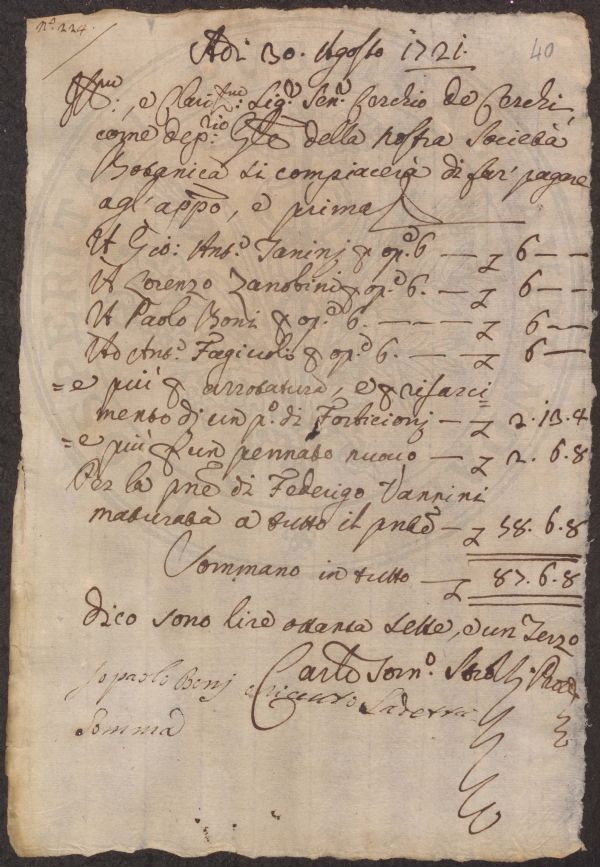 n.º 224.
40
Adi 30. Agosto 1721.
Ill.mo: e Clar.mo: Sig.r Sen.r Cerchio de Cerchi,
come dep.rio Gñle della nostra Società
Botanica si compiacerà di far' pagare
agl'appõ, e prima
A Gio: Ant.º Janinj p op.e 6 — ƶ 6 — —
A Lorenzo Zanobini p op.e 6. — ƶ 6 — —
A Paolo Boni p op.e 6. — — — ƶ 6 — —
Ad Ant.º Fagiuoli p op.e 6. — ƶ 6 — —
= e più p arrotatura, e p risarci=
mento di un p.º di Forbicionj — ƶ 2. 13. 4
= e più p un pennato nuovo — ƶ 2. 6. 8
Per la pñe di Federigo Vannini
maturata a tutto il pñte — ƶ 58. 6. 8
Sommano in tutto — ƶ 87. 6. 8
dico sono lire ottanta sette, e un Terzo
Carlo
Io paolo Bonj o riceuuto
Somma